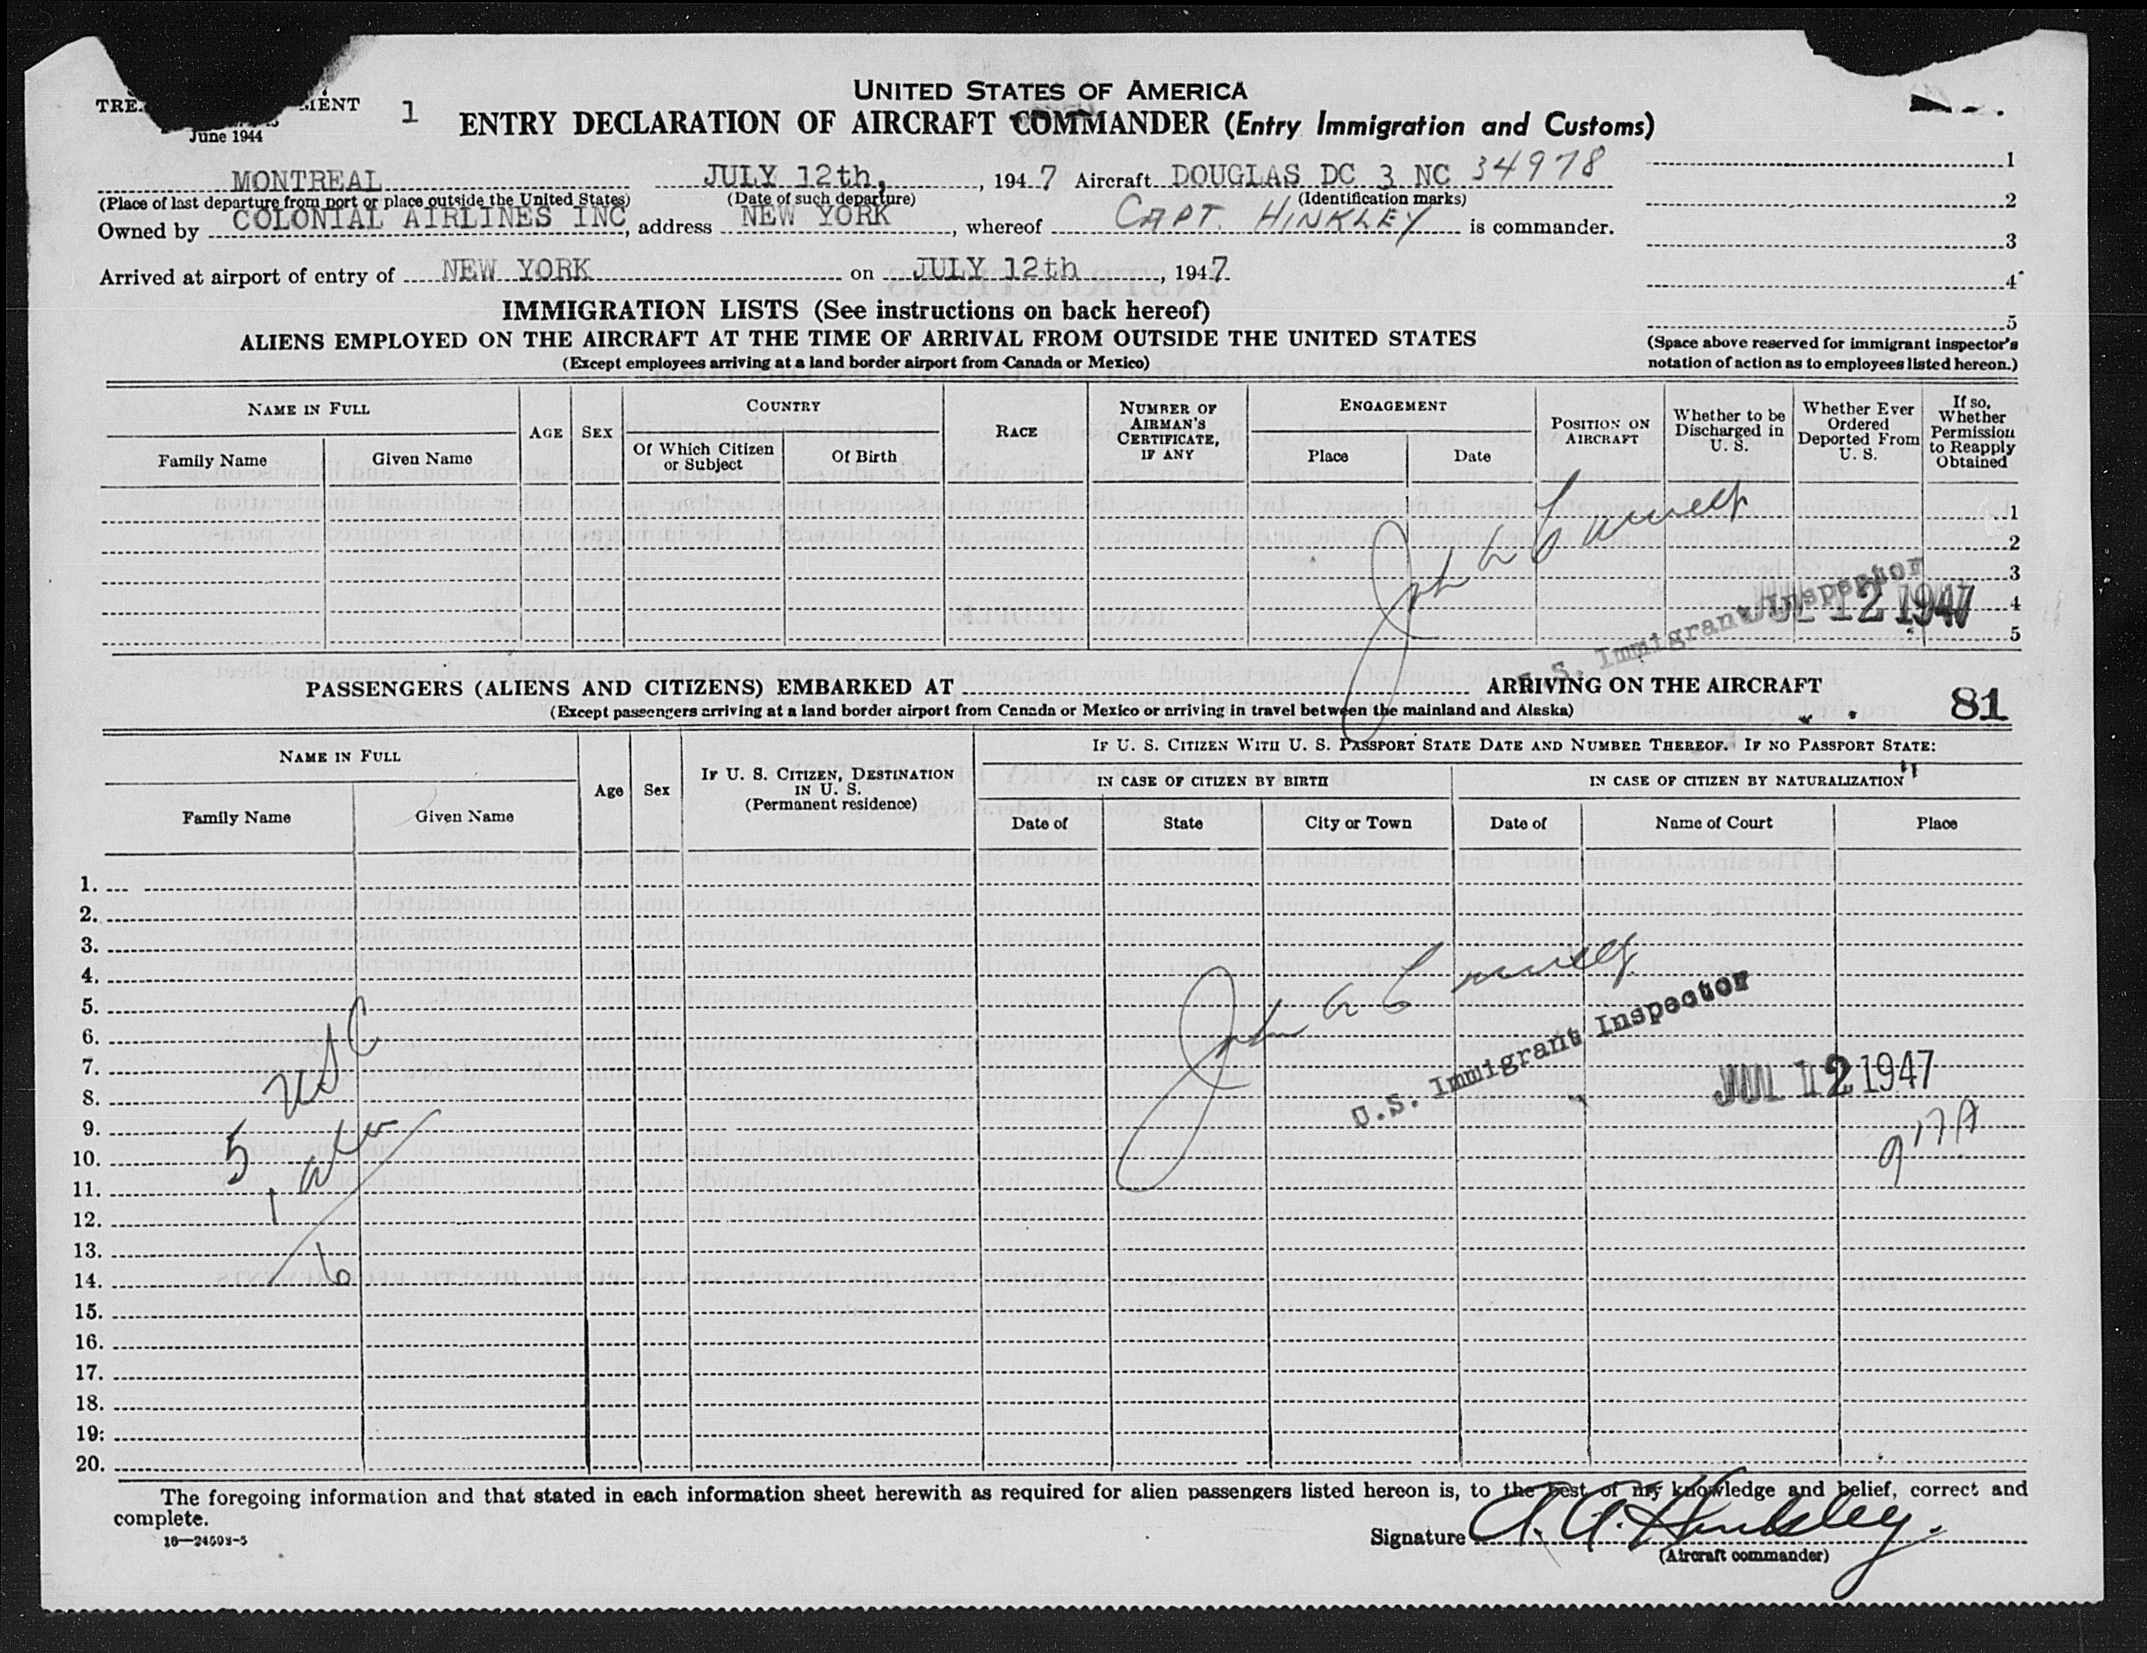 UNITED STATES OF AMERICA
June 1944
1
ENTRY DECLARATION OF AIRCRAFT COMMANDER (Entry Immigration and Customs)
MONTREAL JULY 12th, , 1947 Aircraft DOUGLAS DC 3 NC 34978
(Place of last departure from port or place outside the United States) (Date of such departure) (Identification marks)
Owned by COLONIAL AIRLINES INC, address NEW YORK, whereof CAPT. HINKLEY is commander.
Arrived at airport of entry of NEW YORK on JULY 12th, 1947
1
2
3
4
5
(Space above reserved for immigrant inspector's
notation of action as to employees listed hereon.)
IMMIGRATION LISTS (See instructions on back hereof)
ALIENS EMPLOYED ON THE AIRCRAFT AT THE TIME OF ARRIVAL FROM OUTSIDE THE UNITED STATES
(Except employees arriving at a land border airport from Canada or Mexico)
NAME IN FULL
Family Name
Given Name
AGE
SEX
COUNTRY
Of Which Citizen
or Subject
Of Birth
RACE
NUMBER OF
AIRMAN'S
CERTIFICATE,
IF ANY
ENGAGEMENT
Place
Date
POSITION ON
AIRCRAFT
Whether to be
Discharged in
U. S.
Whether Ever
Ordered
Deported From
U. S.
If so,
Whether
Permission
to Reapply
Obtained
1
2
3
4
5
U.S. Immigrant Inspector
JUL 12 1947
PASSENGERS (ALIENS AND CITIZENS) EMBARKED AT ARRIVING ON THE AIRCRAFT
(Except passengers arriving at a land border airport from Canada or Mexico or arriving in travel between the mainland and Alaska)
81
NAME IN FULL
Family Name
Given Name
Age
Sex
IF U. S. CITIZEN, DESTINATION
IN U. S.
(Permanent residence)
IF U. S. CITIZEN WITH U. S. PASSPORT STATE DATE AND NUMBER THEREOF. IF NO PASSPORT STATE:
IN CASE OF CITIZEN BY BIRTH
Date of
State
City or Town
IN CASE OF CITIZEN BY NATURALIZATION
Date of
Name of Court
Place
1.
2.
3.
4.
5.
6.
7.
8.
9.
10.
11.
12.
13.
14.
15.
16.
17.
18.
19.
20.
5 USC
1
6
U.S. Immigrant Inspector
JUL 12 1947
The foregoing information and that stated in each information sheet herewith as required for alien passengers listed hereon is, to the best of my knowledge and belief, correct and
complete.
Signature A. A. Hinkley.
(Aircraft commander)